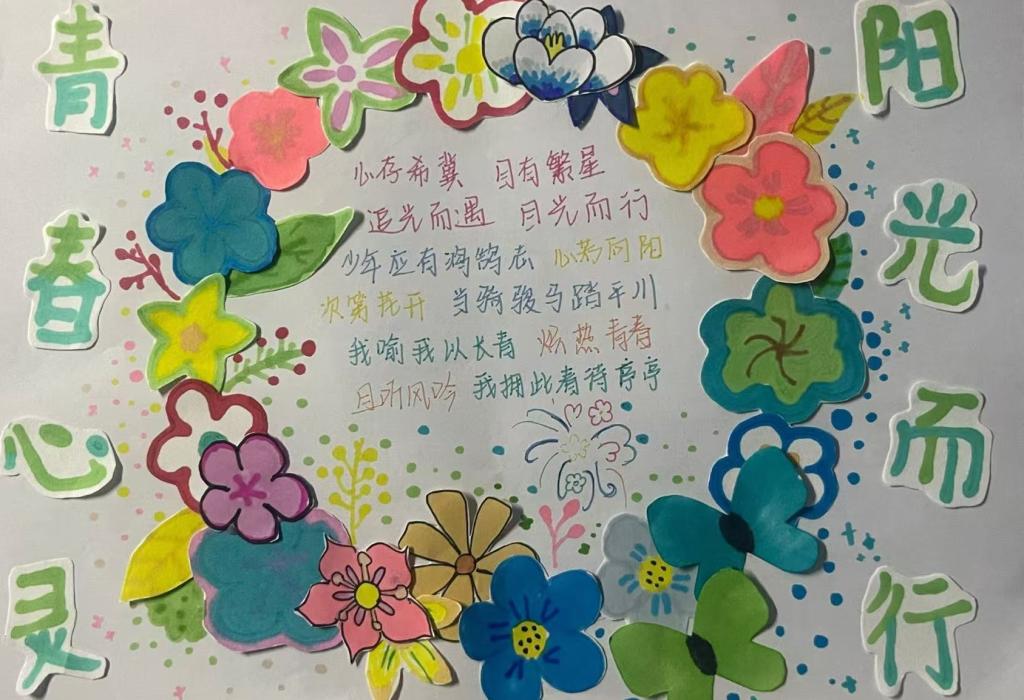 青春心灵
阳光而行
心存希冀 目有繁星
追光而遇 光而行
少年应有鸿鹄志 心若向阳
次第花开 当骑骏马踏平川
我喻我以长青 炽热青春
且听风吟 我拥此春待亭亭